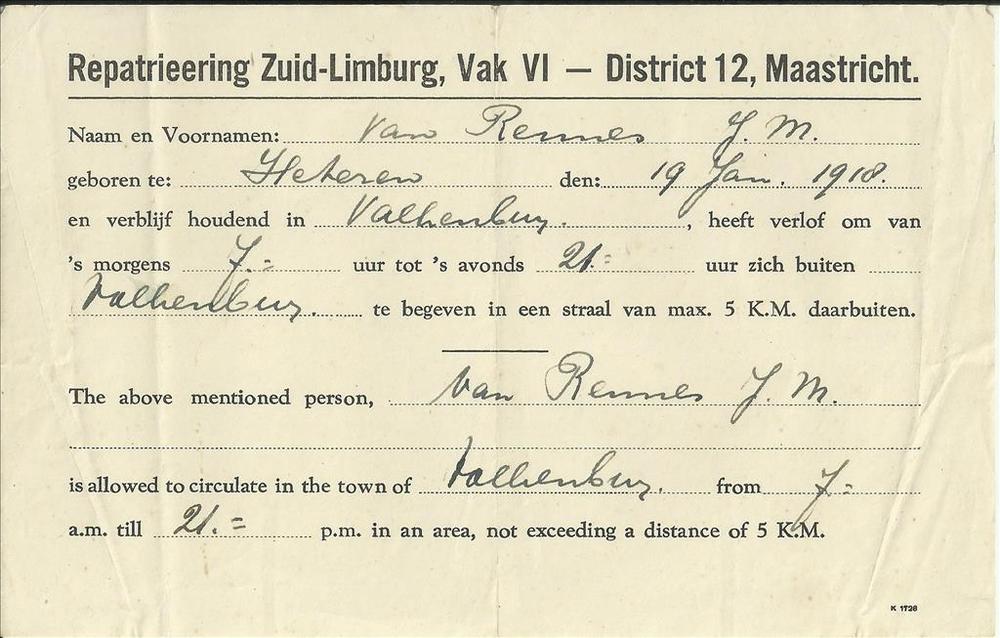 Repatrieering Zuid-Limburg, Vak VI — District 12, Maastricht.
Naam en Voornamen: Van Rennes J. M.
geboren te: Heteren den: 19 Jan. 1918.
en verblijf houdend in Valkenburg. , heeft verlof om van
's morgens 7.= uur tot 's avonds 21.= uur zich buiten
Valkenburg. te begeven in een straal van max. 5 K.M. daarbuiten.
The above mentioned person, van Rennes J. M.
is allowed to circulate in the town of Valkenburg. from 7.=
a.m. till 21.= p.m. in an area, not exceeding a distance of 5 K.M.
K 1726